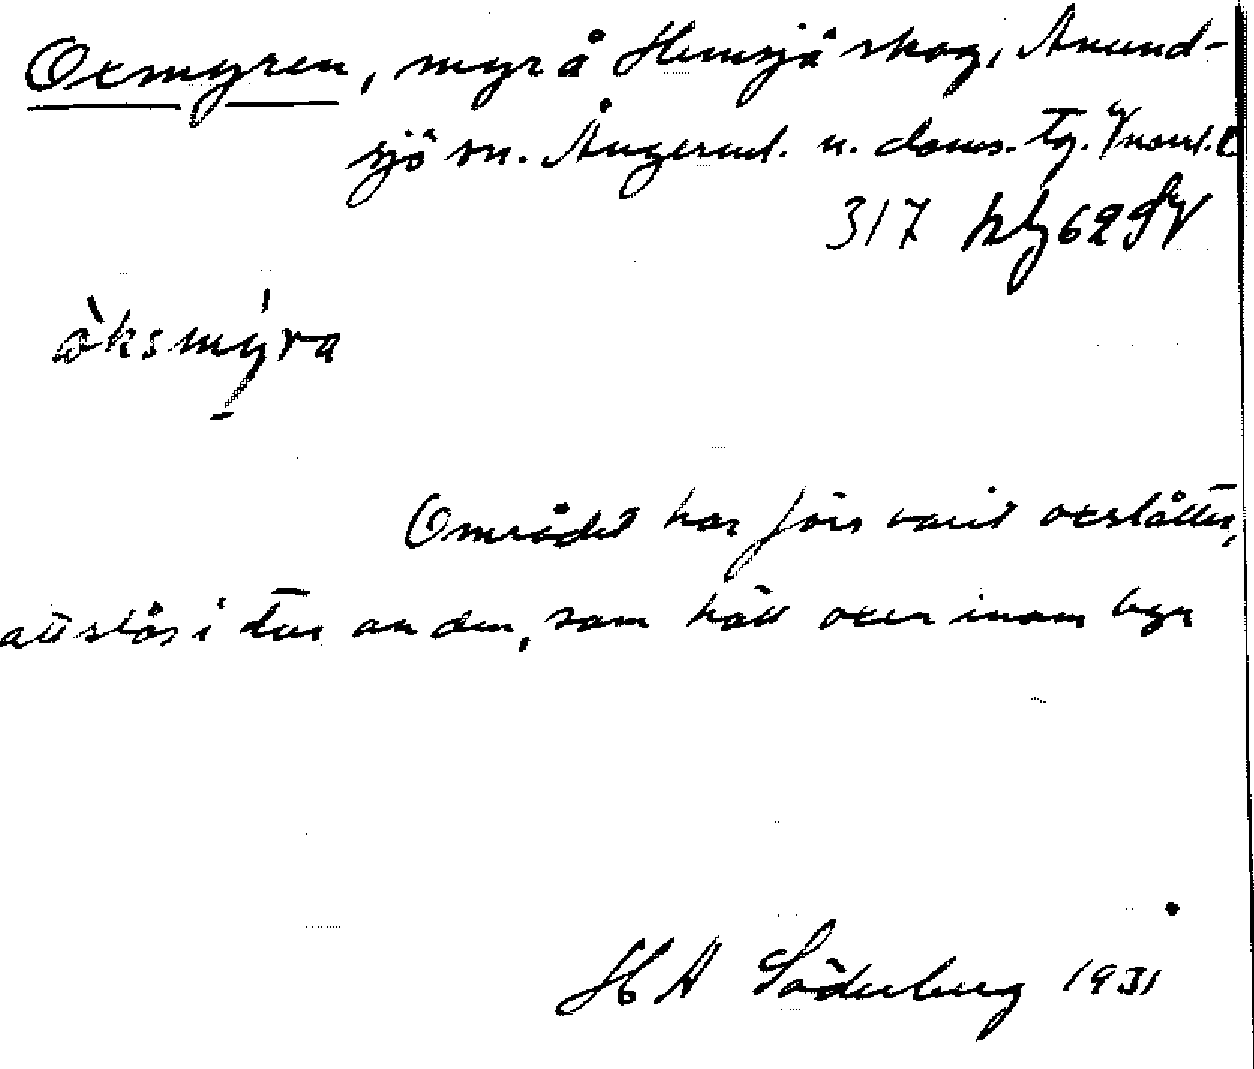 Oxmyren, myr å Hemsjö skog, Anund-
sjö sn. Ångerml. n. doms. Tg. Vnorrl. l
317 hbj 62 SV
òksmýra
Området har förr varit oxslåtter,
att slås i tur av den, som höll oxen inom byn
H A Söderberg 1931